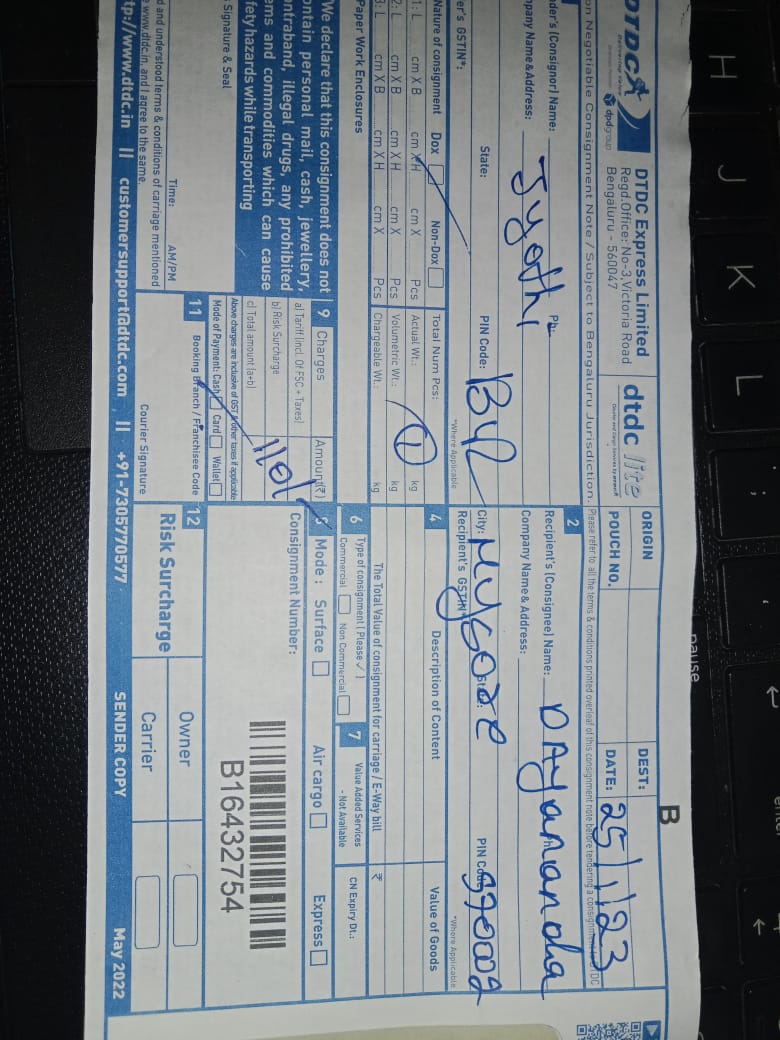 DTDC
Deliver Value
dpdgroup
DTDC Express Limited
Regd.Office: No-3,Victoria Road
Bengaluru - 560047
dtdc lite
ORIGIN
DEST:
POUCH NO.
DATE: 25/1/23
B
on Negotiable Consignment Note / Subject to Bengaluru Jurisdiction.
Please refer to all the terms & conditions printed overleaf of this consignment note before tendering a consignment to DTDC
nder's (Consignor) Name:
Ph:
Jyothi
pany Name&Address:
State:
PIN Code:
er's GSTIN*:
*Where Applicable
2
Recipient's (Consignee) Name:
DAyananda
Company Name & Address:
City: Mysore
State:
PIN Code:
Recipient's GSTIN
*Where Applicable
Nature of consignment Dox Non-Dox
Total Num Pcs:
1: L cm X B cm X H cm X Pcs
Actual Wt.: kg
2: L cm X B cm X H cm X Pcs
Volumetric Wt.: 1 kg
3: L cm X B cm X H cm X Pcs
Chargeable Wt.: kg
4
Description of Content
Value of Goods
The Total Value of consignment for carriage / E-Way bill ₹
Paper Work Enclosures
6 Type of consignment ( Please ✓ )
Commercial Non Commercial
7 Value Added Services
- Not Available
CN Expiry Dt.:
We declare that this consignment does not
ontain personal mail, cash, jewellery,
ontraband, illegal drugs, any prohibited
ems and commodities which can cause
fety hazards while transporting
Signature & Seal
9 Charges Amount(₹)
a) Tariff (incl. Of FSC + Taxes)
b) Risk Surcharge
c) Total amount (a+b)
110/-
Above charges are inclusive of GST & other taxes if applicable
Mode of Payment: Cash Card Wallet
Mode : Surface Air cargo Express
Consignment Number:
B16432754
d and understood terms & conditions of carriage mentioned
www.dtdc.in, and I agree to the same.
Time: AM/PM
11 Booking Branch / Franchisee Code
Courier Signature
12
Risk Surcharge
Owner
Carrier
tp://www.dtdc.in || customersupport@dtdc.com || +91-7305770577
SENDER COPY
May 2022
H
J
K
L
;
pause